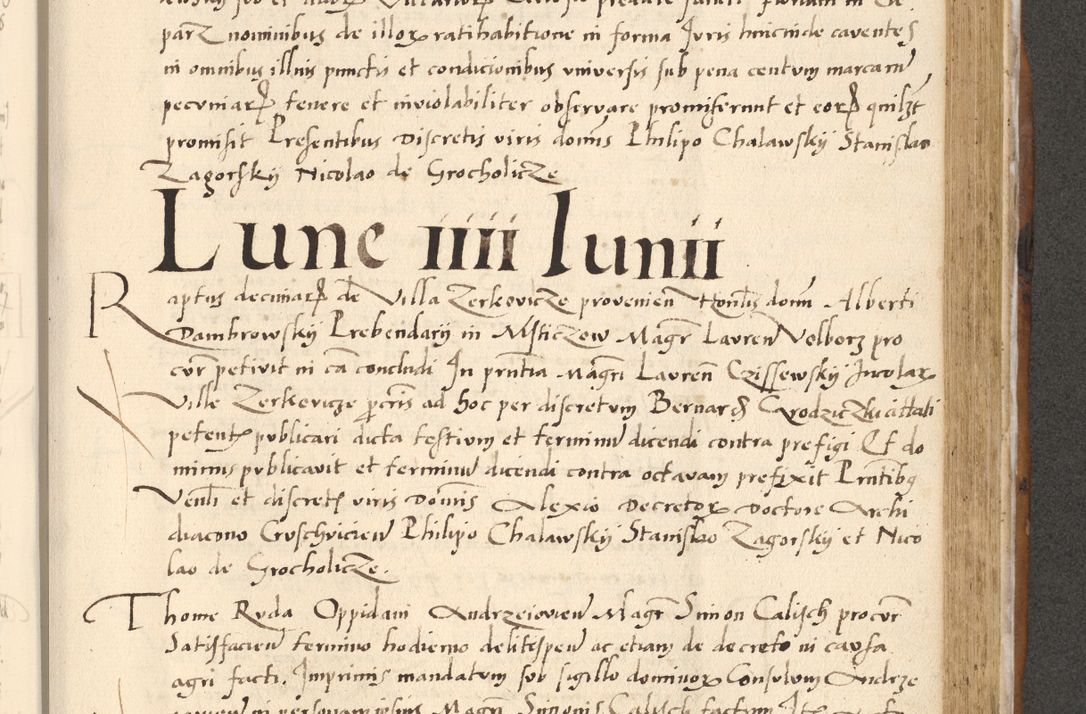 parz nominibus de illor ratihabitione in forma Juris hincinde cauentes
in omnibus illius punctis et condicionibus vniuersis sub pena centum marcarum
pecuniar tenere et inuiolabiliter obseruare promiserunt et eor quilzt
promisit Presentibus Discretis viris domis Philipo Chalawskij Stanislao
Zagorskij Nicolao de Grocholicze
Lune iiii Iunii
Raptus decimar de Villa Zerkovicze provenien Honlis domi Alberti
Dambrowskij Prebendarij in Msticzow Magr Lauren Volborz pro
cur petiuit in ca concludi In pntia Magri Lauren Czissewskij Incolar
Ville Zerkovicze pcris ad hoc per discretum Bernard Grodziczki cittati
petent publicari dicta testium et terminum dicendi contra prefigi Et do
minus publicauit et terminum dicendi contra octauam prefixit Pntibq
Venli et discret viris Dominis Alexio Decretor Doctore Archi
diacono Cruschvicien Philipo Chalawskij Stanislao Zagorskij et Nico
lao de Grocholicze.
Thome Ruda Oppidani Andrzeiovien Magr Simon Calisch procur
Satisfacien termino hodierno delitespen ac etiam de decreto in causa
agri facti. Imprimis mandatum sub sigillo dominor Consulum Andrze